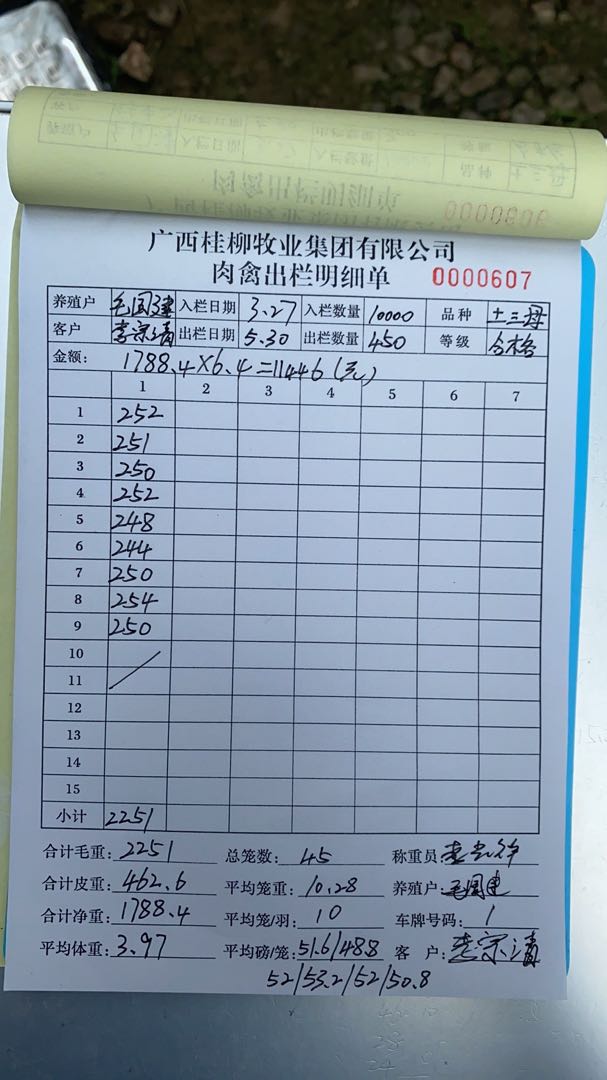 广西桂柳牧业集团有限公司
肉禽出栏明细单 0000607
养殖户 毛国建 入栏日期 3.27 入栏数量 10000 品种 十三母
客户 李宗清 出栏日期 5.30 出栏数量 450 等级 合格
金额: 1788.4×6.4=11446(元)
1 2 3 4 5 6 7
1 252
2 251
3 250
4 252
5 248
6 244
7 250
8 254
9 250
10
11
12
13
14
15
小计 2251
合计毛重: 2251 总笼数: 45 称重员:
合计皮重: 462.6 平均笼重: 10.28 养殖户: 毛国建
合计净重: 1788.4 平均笼/羽: 10 车牌号码: 1
平均体重: 3.97 平均磅/笼: 51.6/48.8 客 户: 李宗清
52/53.2/52/50.8